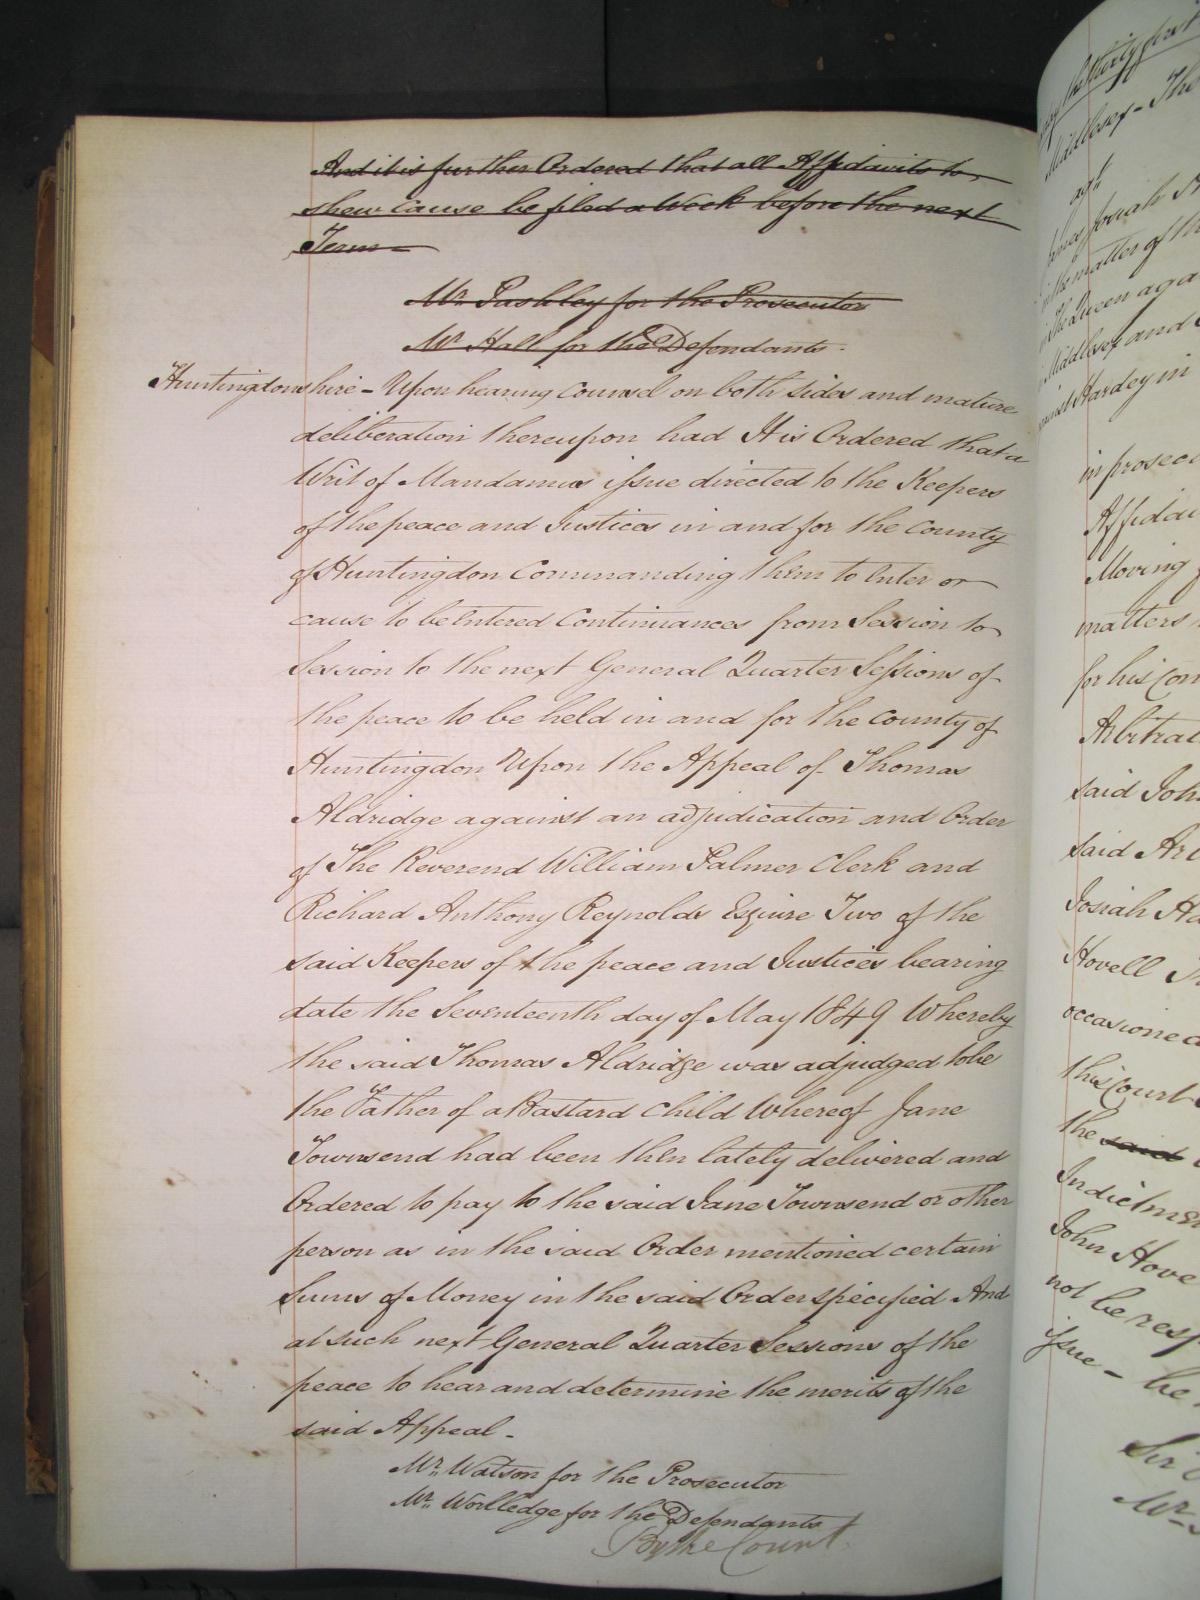 And it is further Ordered that all Affidavits to
shew cause be filed a Week before the next
Term -
Mr. Pashley for the Prosecutor
Mr. Hall for the Defendants -
Huntingdonshire - Upon hearing Counsel on both sides and mature
deliberation thereupon had It is Ordered that a
Writ of Mandamus issue directed to the Keepers
of the peace and Justices in and for the County
of Huntingdon Commanding them to Enter or
cause to be Entered Continuances from Session to
Session to the next General Quarter Sessions of
the peace to be held in and for the County of
Huntingdon Upon the Appeal of Thomas
Aldridge against an adjudication and Order
of The Reverend William Palmer Clerk and
Richard Anthony Reynolds Esquire Two of the
said Keepers of the peace and Justices bearing
date the Seventeenth day of May 1849 Whereby
the said Thomas Aldridge was adjudged to be
the Father of a Bastard Child Whereof Jane
Townsend had been then lately delivered and
Ordered to pay to the said Jane Townsend or other
person as in the said Order mentioned certain
Sums of Money in the said Order specified And
at such next General Quarter Sessions of the
peace to hear and determine the merits of the
said Appeal -
Mr. Watson for the Prosecutor
Mr. Worlledge for the Defendants
By the Court
Middlesex - The
agt
Josiah
in the matter of the
the Queen aga
Middlesex and
Hardey in
in prosec
Affidav
Moving
matters
for his Com
Arbitrat
said Joh
said Ar
Josiah Ha
Hovell
occasioned
this Court
the said
Indictmen
John Hove
not be resp
issue - he
Sir
Mr.